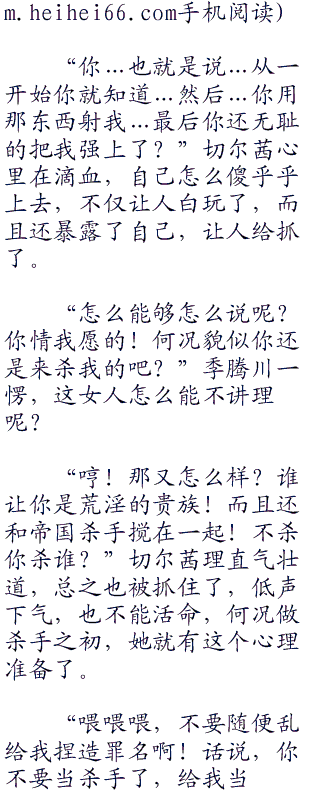 m.heihei66.com手机阅读)
“你…也就是说…从一
开始你就知道…然后…你用
那东西射我…最后你还无耻
的把我强上了？”切尔茜心
里在滴血，自己怎么傻乎乎
上去，不仅让人白玩了，而
且还暴露了自己，让人给抓
了。
“怎么能够怎么说呢？
你情我愿的！何况貌似你还
是来杀我的吧？”季腾川一
愣，这女人怎么能不讲理
呢？
“哼！那又怎么样？谁
让你是荒淫的贵族！而且还
和帝国杀手搅在一起！不杀
你杀谁？”切尔茜理直气壮
道，总之也被抓住了，低声
下气，也不能活命，何况做
杀手之初，她就有这个心理
准备了。
“喂喂喂，不要随便乱
给我捏造罪名啊！话说，你
不要当杀手了，给我当